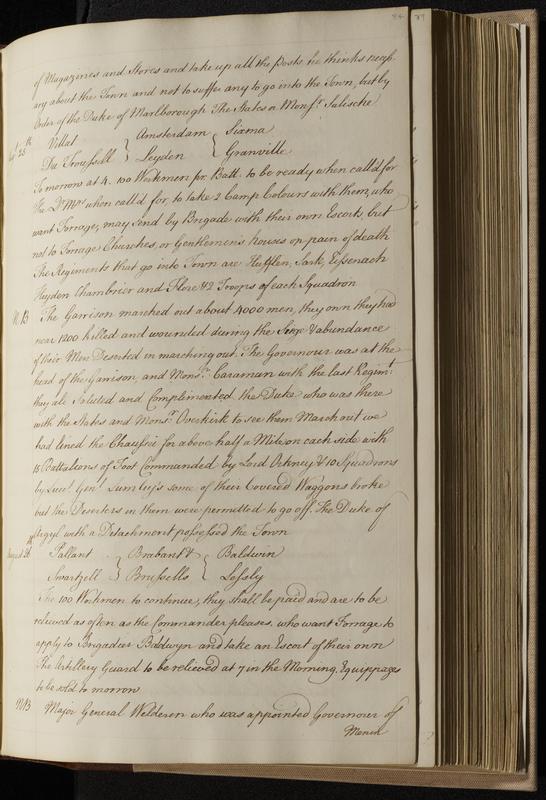 84
of Magazines and Stores and take up all the Posts he thinks necess
ary about the Town and not to suffer any to go into the Town, but by
Order of the Duke of Marlborough The States or Monsr. Salische
25th Villat } Amsterdam { Sixma
Du Troussell } Leyden { Granville
Tomorrow at 4. 100 Workmen pr. Batt. to be ready when call'd for
The Qr. Mrs. when call'd for, to take 2 Camp Colours with them, who
want Forrage, may send by Brigade with their own Escorts, but
not to Forrage Churches, or Gentlemen's houses on pain of death
The Regiments that go into Town are Hufflen, Sark, Eissenach
Heydon Chambrier and Flore 42 Troops of each Squadron
NB The Garrison marched out about 4000 men, they own they had
near 1200 killed and wounded during the Seige & abundance
of their Men Deserted in marching out. The Governour was at the
head of the Garrison, and Monsr. Caraman with the last Regimt.
they all Saluted and Complimented the Duke who was there
with the States and Monsr. Overkirk to see them March out we
had lined the Chaussee for above half a Mile on each side with
15 Battalions of Foot Commanded by Lord Orkney & 10 Squadrons
by Lieut. Genl. Lumley's some of their Covered Waggons broke
but the Deserters in them were permitted to go off. The Duke of
Argyl with a Detachment possessed the Town
August 26th Pallant } Brabant { Baldwin
Swartzell } Brussells { Lessly
The 100 Workmen to continue, they shall be paid and are to be
relieved as often as the Commander pleases. who want Forrage to
apply to Brigadier Baldwyn and take an Escort of their own
The Artillery Guard to be relieved at 7 in the Morning. Equippages
to be sold to morrow
NB Major General Welderen who was appointed Governour of
Menin